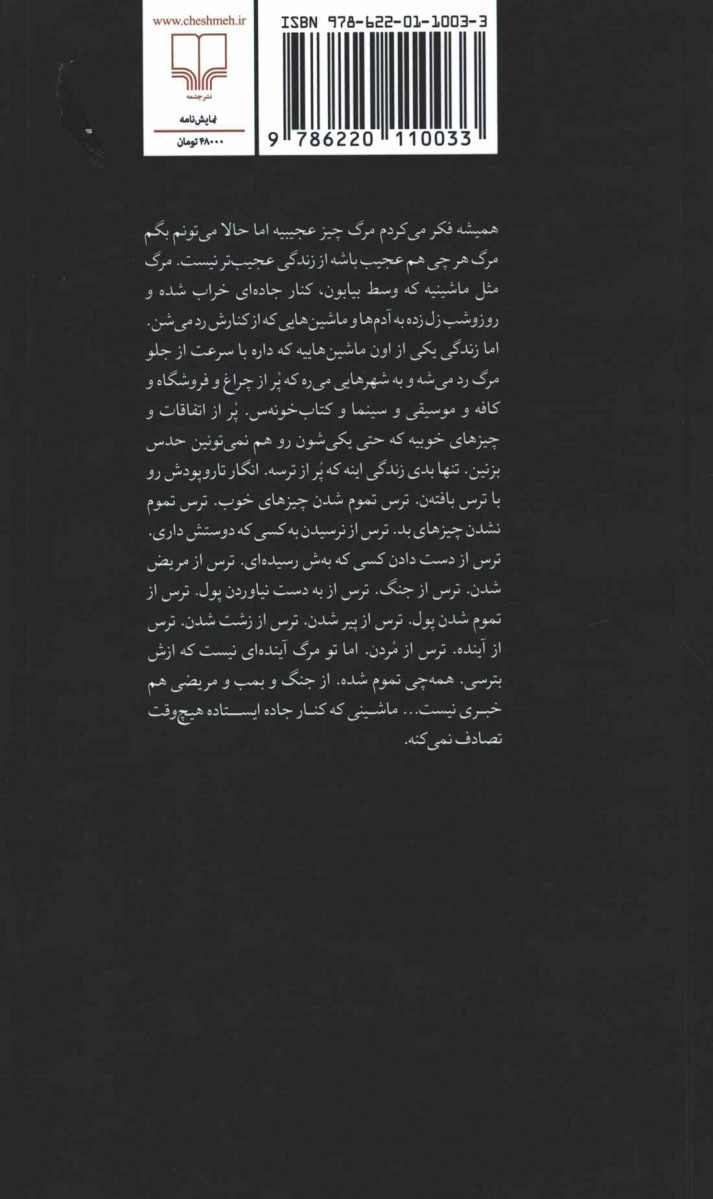 www.cheshmeh.ir
نشرچشمه
نمایش‌نامه
۴۸۰۰۰ تومان
ISBN 978-622-01-1003-3
9 786220 110033
همیشه فکر می‌کردم مرگ چیز عجیبیه اما حالا می‌تونم بگم
مرگ هر چی هم عجیب باشه از زندگی عجیب‌تر نیست. مرگ
مثل ماشینیه که وسط بیابون، کنار جاده‌ای خراب شده و
روزوشب زل زده به آدم‌ها و ماشین‌هایی که از کنارش رد می‌شن.
اما زندگی یکی از اون ماشین‌هاییه که داره با سرعت از جلو
مرگ رد می‌شه و به شهرهایی می‌ره که پُر از چراغ و فروشگاه و
کافه و موسیقی و سینما و کتاب‌خونه‌س. پُر از اتفاقات و
چیزهای خوبیه که حتی یکی‌شون رو هم نمی‌تونین حدس
بزنین. تنها بدی زندگی اینه که پُر از ترسه. انگار تاروپودش رو
با ترس بافته‌ن. ترس تموم شدن چیزهای خوب. ترس تموم
نشدن چیزهای بد. ترس از نرسیدن به کسی که دوستش داری.
ترس از دست دادن کسی که به‌ش رسیده‌ای. ترس از مریض
شدن. ترس از جنگ. ترس از به دست نیاوردن پول. ترس از
تموم شدن پول. ترس از پیر شدن. ترس از زشت شدن. ترس
از آینده. ترس از مُردن. اما تو مرگ آینده‌ای نیست که ازش
بترسی. همه‌چی تموم شده. از جنگ و بمب و مریضی هم
خبری نیست... ماشینی که کنار جاده ایستاده هیچ‌وقت
تصادف نمی‌کنه.